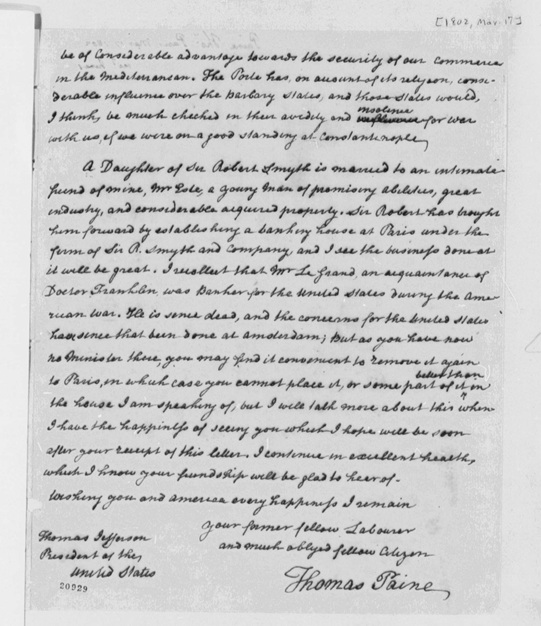 [1802, Mar. 17]
be of Considerable advantage towards the security of our Commerce
in the Mediteranean. The Porte has, on amount of its religeon, consi-
derable influence over the Barbary States, and those States would,
I think, be much checked in their avidity and insolence for war
with us, if we were on a good standing at Constantinople,
A Daughter of Sir Robert Smyth is married to an intimate
friend of mine, Mr Este, a young man of promising abilities, great
industry, and considerable acquired property. Sir Robert has brought
him forward by establishing a banking house at Paris under the
firm of Sir R. Smyth and Company, and I see the business done at
it will be great. I recollect that Mr Le Grand, an acquaintance of
Doctor Franklin, was Banker for the United States during the Ame-
rican war. He is since dead, and the concerns for the United States
have since that been done at Amsterdam; but as you have now
no Minister there, you may find it convenient to remove it again
to Paris, in which case you cannot place it, or some part of it better than in
the house I am speaking of, but I will talk more about this when
I have the happiness of seeing you which I hope will be soon
after your receipt of this letter. I continue in excellent health,
which I know your friendship will be glad to hear of.
Wishing you and America every happiness I remain
your former fellow Labourer
and much obliged fellow Citizen
Thomas Paine
Thomas Jefferson
President of the
United States
20929